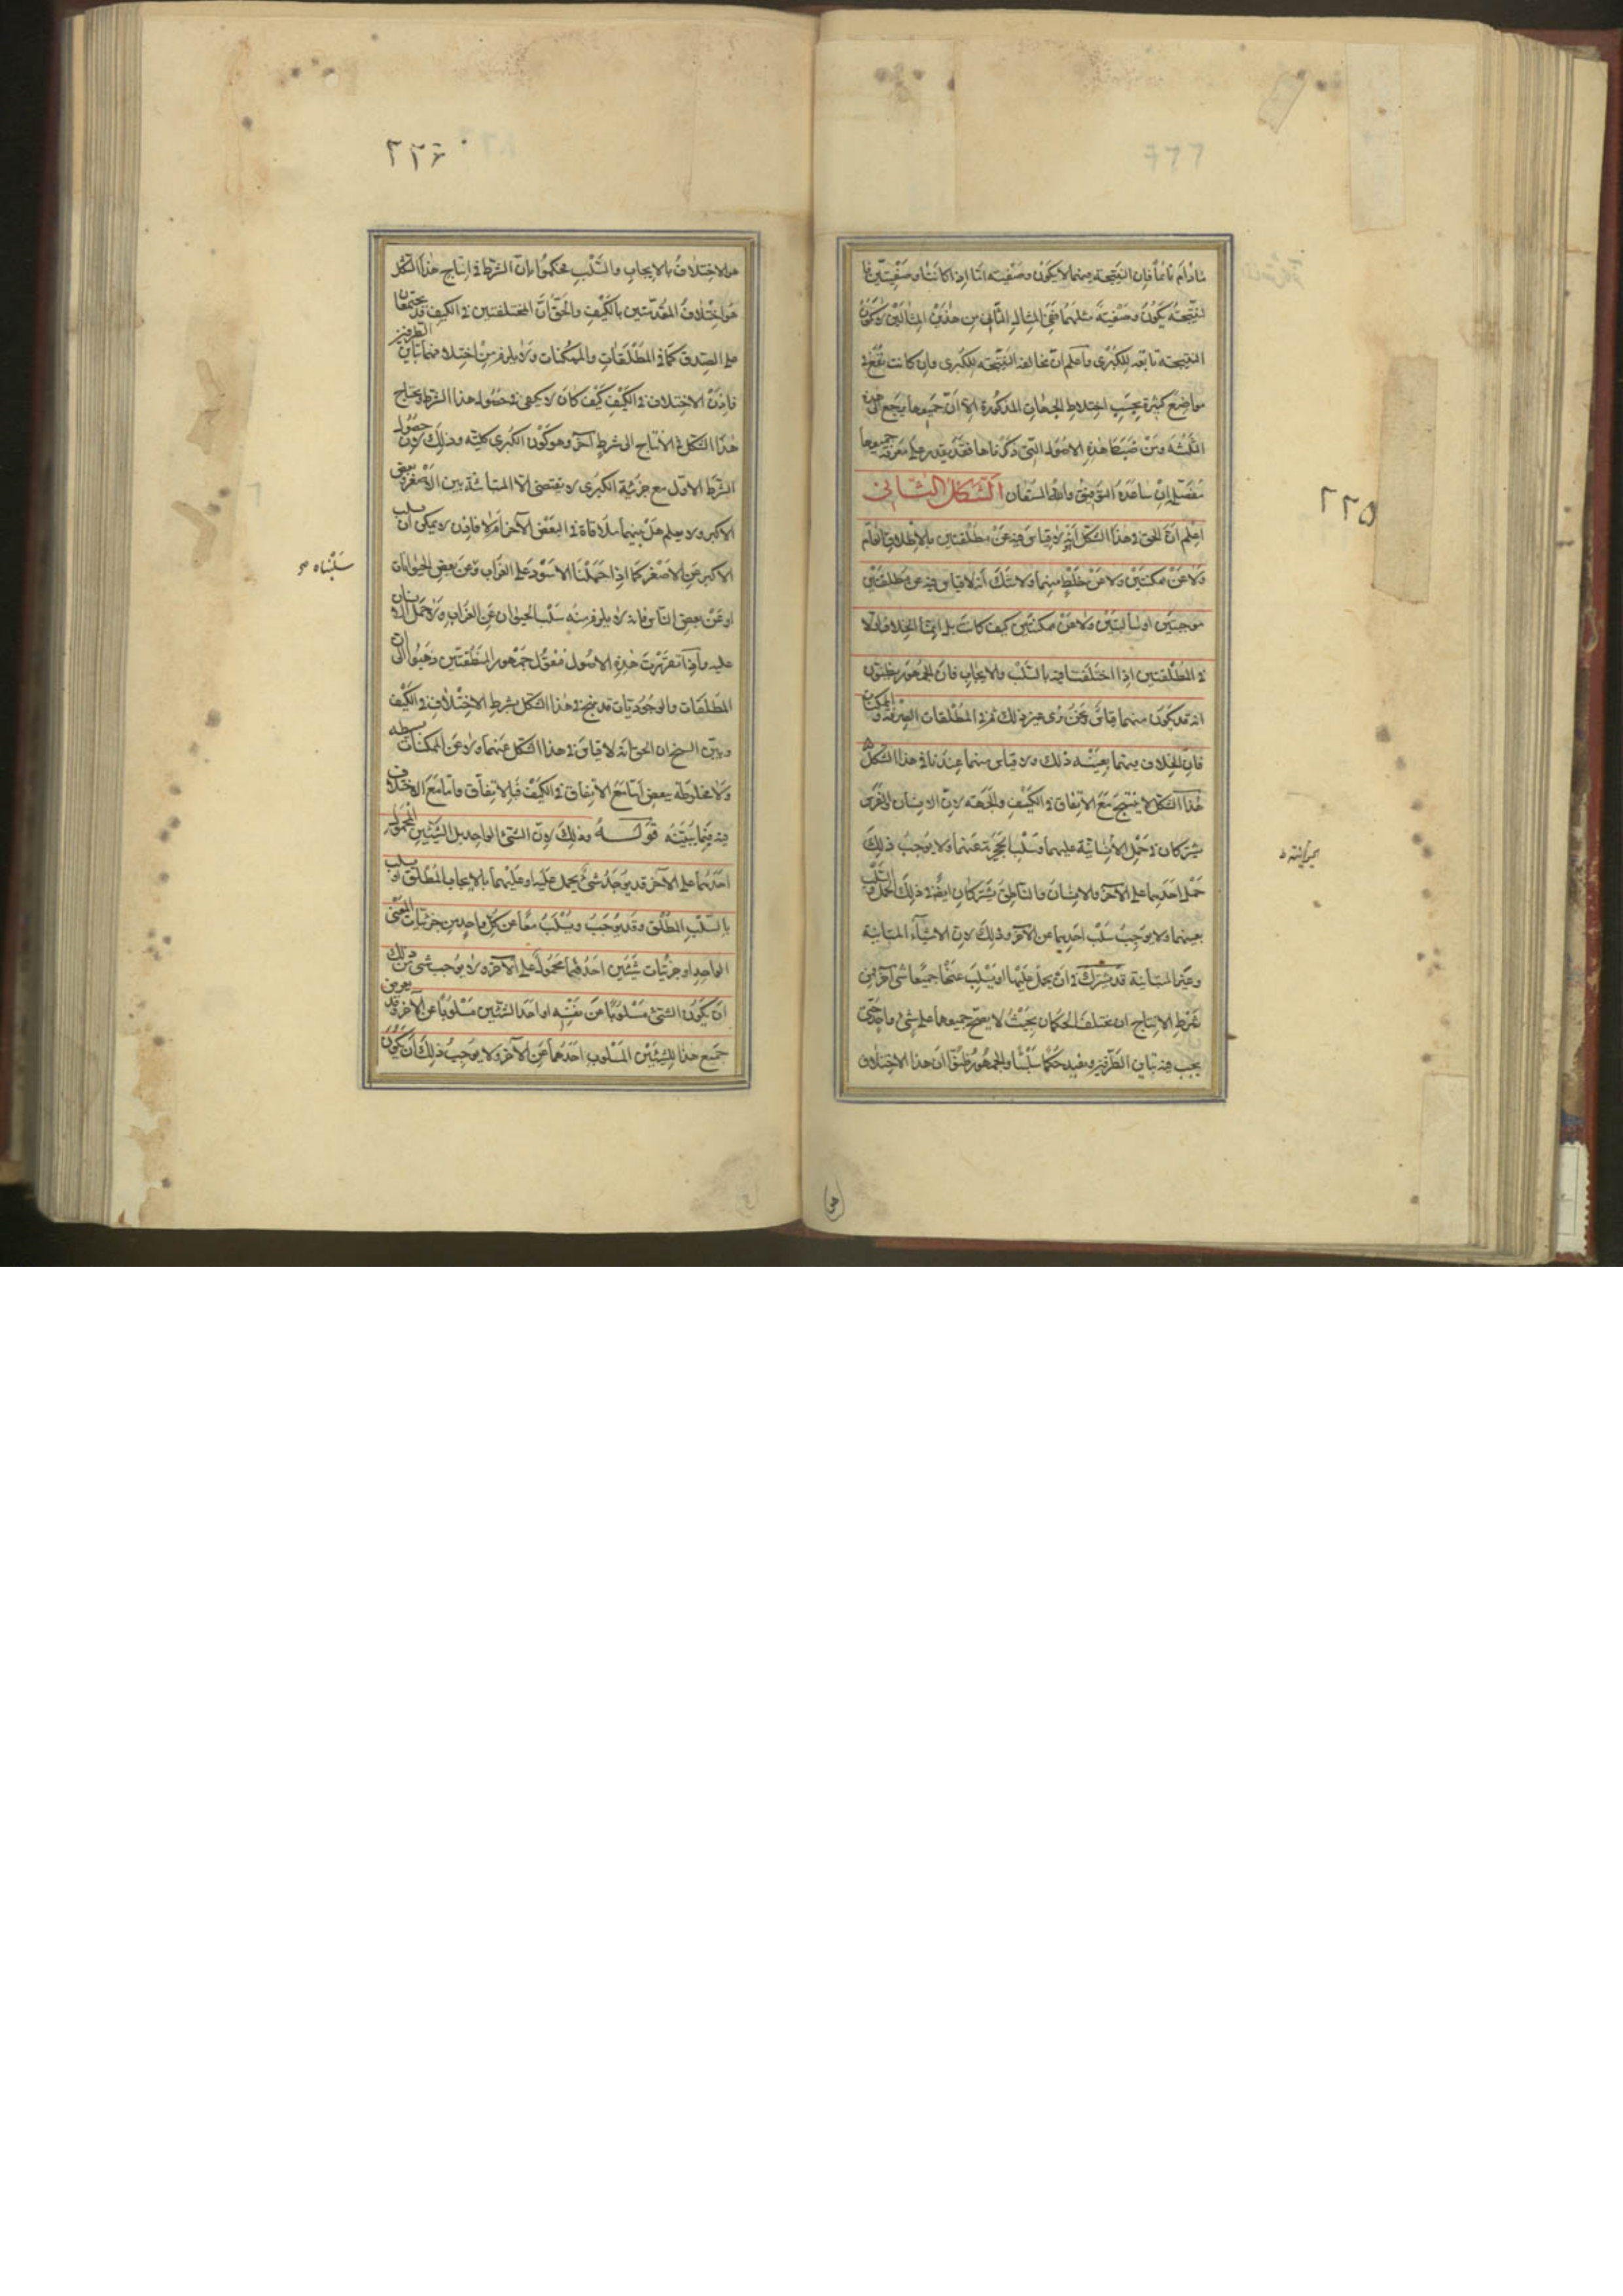 مادام نائماً فان النتيجة منهما لا يكون وصفية اما اذا كانتا وصفيتين فا
لنتيجة يكون وصفية مثلهما ففي المثال الثاني من هذين المثالين لا يكون
النتيجة تابعة للكبرى واعلم ان مخالفة النتيجة للكبرى وان كانت تقع في
مواضع كثيرة بحسب اختلاط الجهات المذكورة الا ان جميعها يرجع الى هذه
الثلثة ومن ضبط هذه الاصول التي ذكرناها فقد يقدر على معرفة جميعها
مفصلة ان ساعده التوفيق والله المستعان الشكل الثاني
٢٢٥
اعلم ان الحق في هذا الشكل انه لا قياس فيه عن مطلقتين بالاطلاق العام
ولا عن ممكنتين ولا عن خلط منهما ولا شك انه لا قياس فيه عن مطلقتين
موجبتين او سالبتين ولا عن ممكنتين كيف كانت بل انما الخلاف اولا
في المطلقتين اذا اختلفتا فيه بالسلب والايجاب فان الجمهور يظنون
انه قد يكون منهما قياس ونحن نرى غير ذلك ثم في المطلقات الصرفة والممكنات
فان الخلاف فيهما بعينه ذلك ولا قياس منهما عندنا في هذا الشكل
هذا الشكل لا ينتج مع الاتفاق في الكيف والجهة لان الانسان والفرس
يشتركان في حمل عليهما وسلب الحجرية عنهما ولا يوجب ذلك
حمل احدهما على الآخر والانسان والناطق يشتركان ايضا في ذلك الحمل والسلب
بعينهما ولا يوجب سلب احدهما عن الآخر وذلك لان الاشياء المتباينة
وغير المتباينة قد تشترك في ان يحمل عليها او يسلب عنها جميعا شي آخر فمن
شرط الانتاج ان يختلف الحكمان بحيث لا يصح جميعهما على شي واحد حتى
يجب فيه تباين الطرفين ويفيد حكما سلبيا والجمهور ظنوا ان هذا الاختلاف
٢٢٦
هو الاختلاف بالايجاب والسلب فحكموا بان الشرط في انتاج هذا الشكل
هو اختلاف المقدمتين بالكيف والحق ان المختلفتين في الكيف قد يجتمعان
على الصدق كما في المطلقات والممكنات ولا يلزم من اختلافهما تباين الطرفين
فاذن الاختلاف في الكيف كيف كان لا يكفي في حصول هذا الشرط ويحتاج
هذا الشكل في الانتاج الى شرط آخر وهو كون الكبرى كلية وذلك لان حصول
الشرط الاول مع جزئية الكبرى لا يقتضي الا المباينة بين الاصغر وبعض
الاكبر ولا يعلم هل بينهما ملاقاة في البعض الآخر ام لا فاذن لا يمكن ان يسلب
الاكبر عن الاصغر كما اذا حملنا الاسود على الغراب وعن بعض الحيوانات
سلبناه
او عن بعض الناس فانه لا يلزم منه سلب الحيوان عن الغراب ولا حمل الانسان
عليه واذا تقررت هذه الاصول فنقول جمهور المنطقيين ذهبوا الى ان
المطلقات والوجوديات قد ينتج في هذا الشكل بشرط الاختلاف في الكيف
وبين الشيخ ان الحق انه لا قياس في هذا الشكل عنهما ولا عن الممكنات بسيطه
ولا مخلوطة بعض اما مع الاتفاق في الكيف فبالاتفاق واما مع الاختلاف
فيه فبما يبينه قوله وذلك لان الشيء الواحد بل الشيئين المحمول
احدهما على الآخر قد يوجد شيء يحمل عليه او عليهما بالايجاب المطلق او يسلب
بالسلب المطلق وقد يوجب ويسلب معا عن كل واحد من جزئيات المعنى
الواحد او جزئيات شيئين احدهما محمول على الآخر ولا يوجب شي من ذلك
ان يكون الشيء مسلوبا عن نفسه او احد الشيئين مسلوبا عن الآخر وقد يعرض
جميع هذا للشيئين المسلوب احدهما عن الآخر ولا يوجب ذلك ان يكون